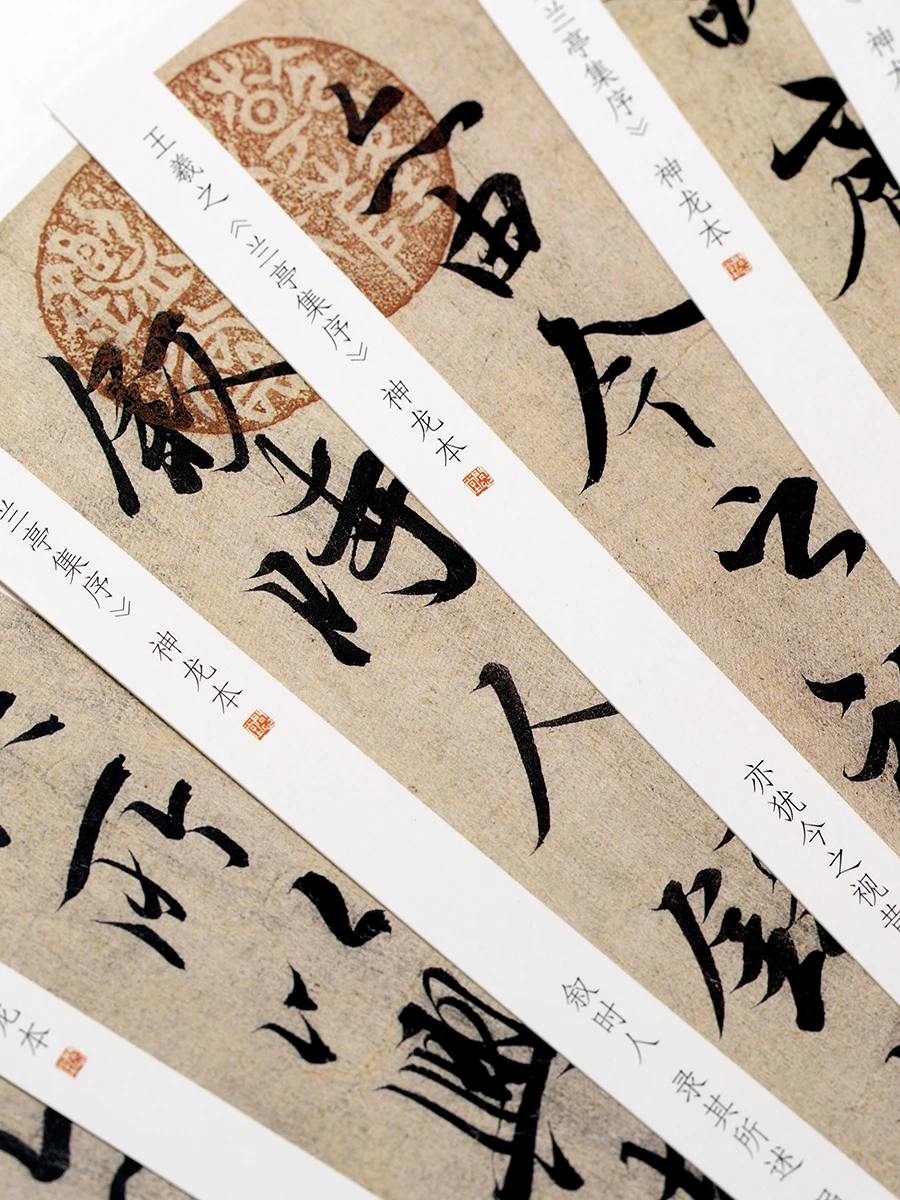 亦由今之視
敘時人錄
所以興
神龙
兰亭集序》 神龙本
王羲之《兰亭集序》 神龙本
亦犹今之视昔
兰亭集序》 神龙本
叙时人 录其所述
龙本